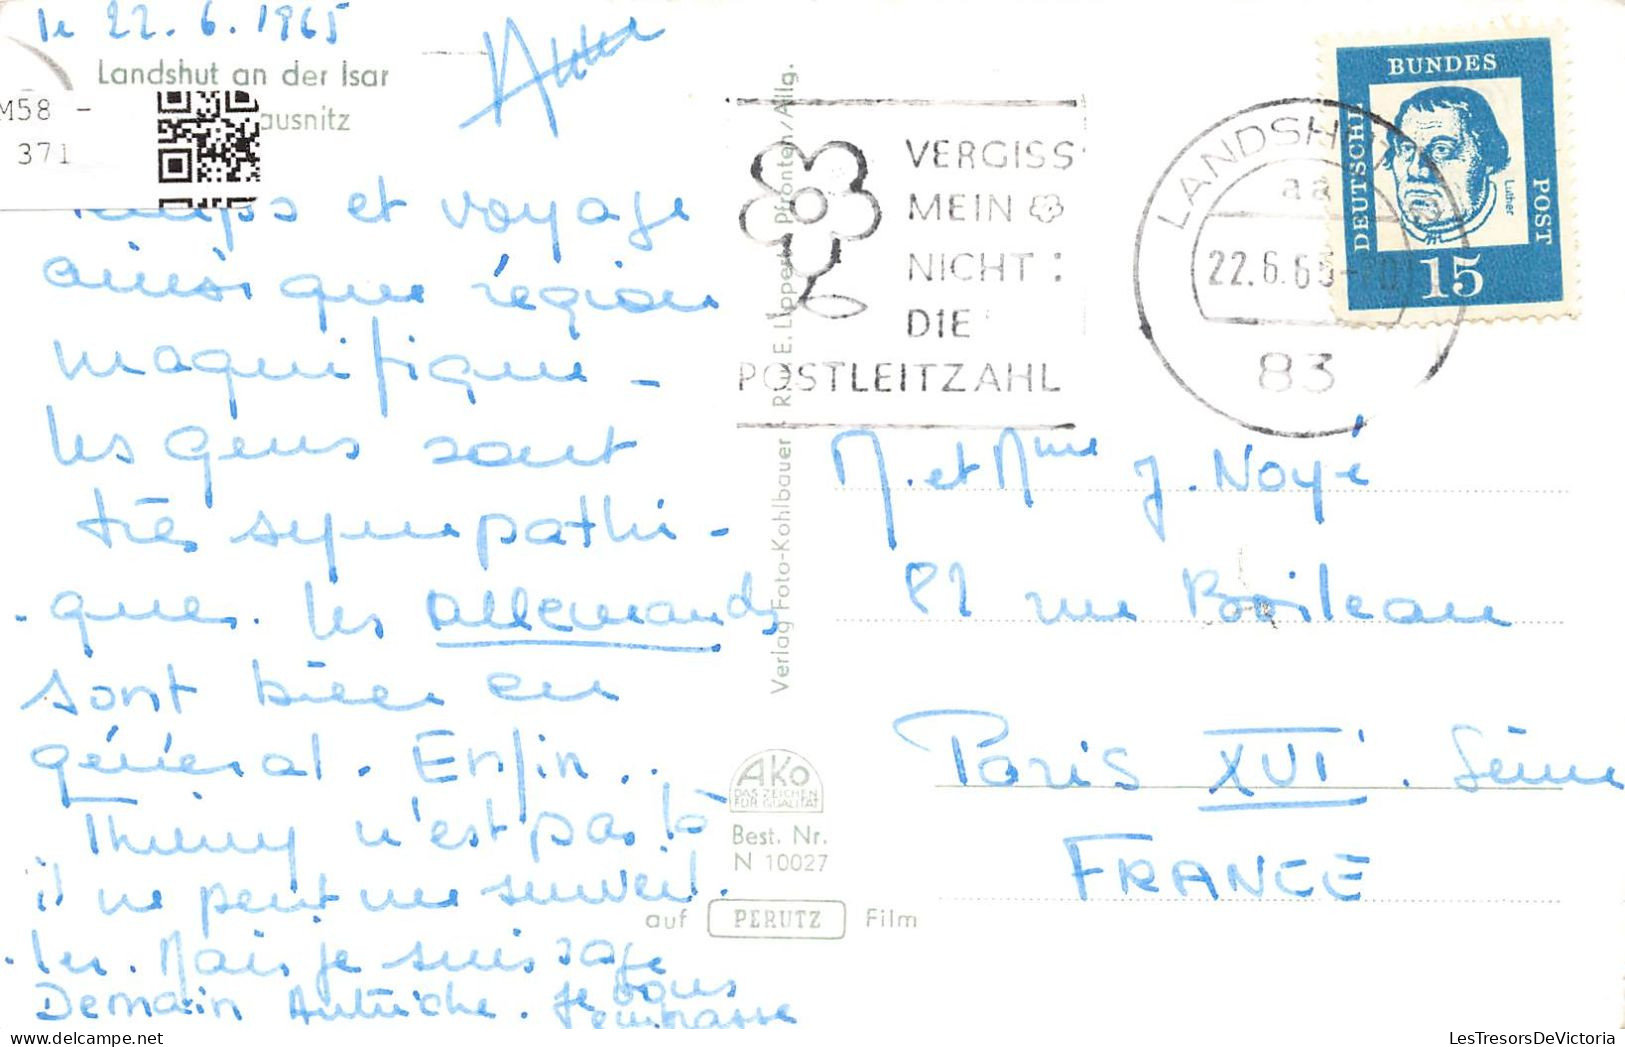 le 22.6.1965
Landshut an der Isar
ausnitz
M58 -
371
et voyage
ainsi que région
magnifique -
les gens sont
très sympathi -
ques. les allemands
sont bien en
général. Enfin..
Thierry n'est pas là
il ne peut me surveil.
ler. Mais je suis sage
Demain Autriche. Je vous
embrasse
Verlag Foto-Kohlbauer
R. u. E. Lippert Pfronten/Allg.
AKO
DAS ZEICHEN
FÜR QUALITÄT
Best. Nr.
N 10027
auf PERUTZ Film
VERGISS
MEIN
NICHT:
DIE
POSTLEITZAHL
LANDSHUT
aa
22.6.65
83
DEUTSCHE
BUNDES
POST
Luther
15
M. et Mme J. Noyé
82 rue Boileau
Paris XVI. Seine
FRANCE
LesTresorsDeVictoria.com